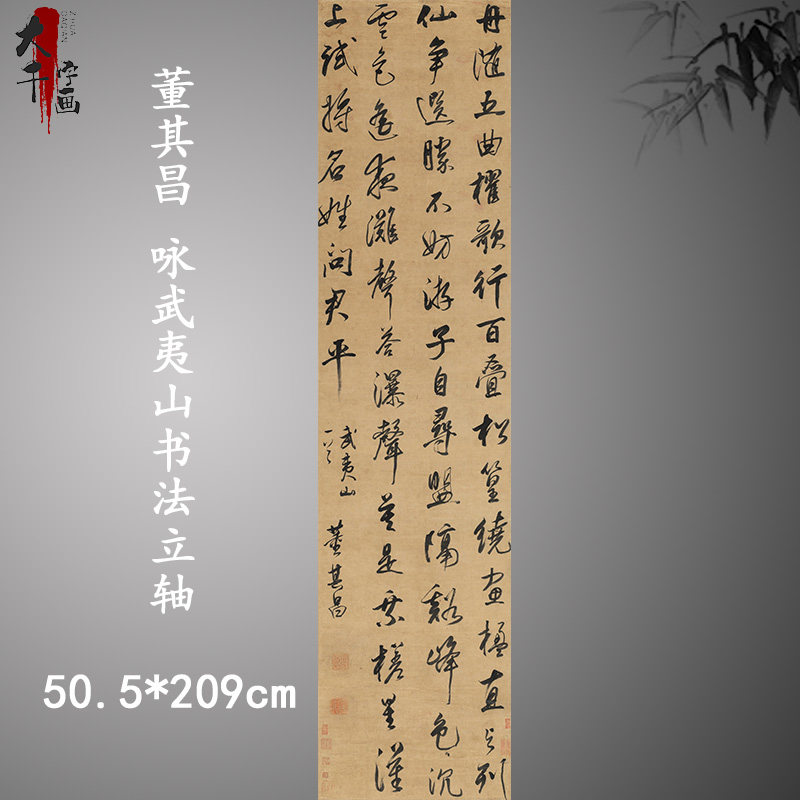 大千字画
董其昌 咏武夷山书法立轴
50.5*209cm
舟隨五曲櫂歌行百疊松篁繞畫楹直與列
仙爭選勝不妨游子自尋盟隔谿峰色沉
雲色遙夜灘聲答瀑聲是乘槎星漢
上試將名姓問君平
武夷山
一首
董其昌